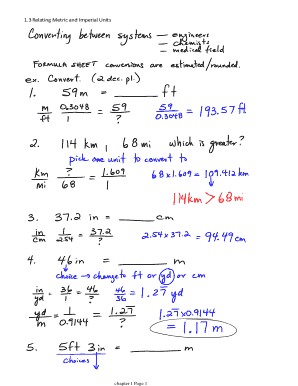 1.3 Relating Metric and Imperial Units
Converting between systems — engineers
— chemists
— medical field
FORMULA SHEET conversions are estimated/rounded.
ex. Convert. (2 deci. pl.)
1. 59m = ______ ft
m/ft 0.3048/1 = 59/? 59/0.3048 = 193.57 ft
2. 114 km, 68 mi which is greater?
pick one unit to convert to
km/mi ?/68 = 1.609/1 68 x 1.609 = 109.412 km
114km > 68mi
3. 37.2 in = ______ cm
in/cm 1/2.54 = 37.2/? 2.54 x 37.2 = 94.49 cm
4. 46 in = ______ m
choice → change to ft or yd or cm
in/yd = 36/1 = 46/? 46/36 = 1.27 yd
yd/m = 1/0.9144 = 1.27/? 1.27 x 0.9144
= 1.17 m
5. 5ft 3in = ______ m
choices
chapter 1 Page 1